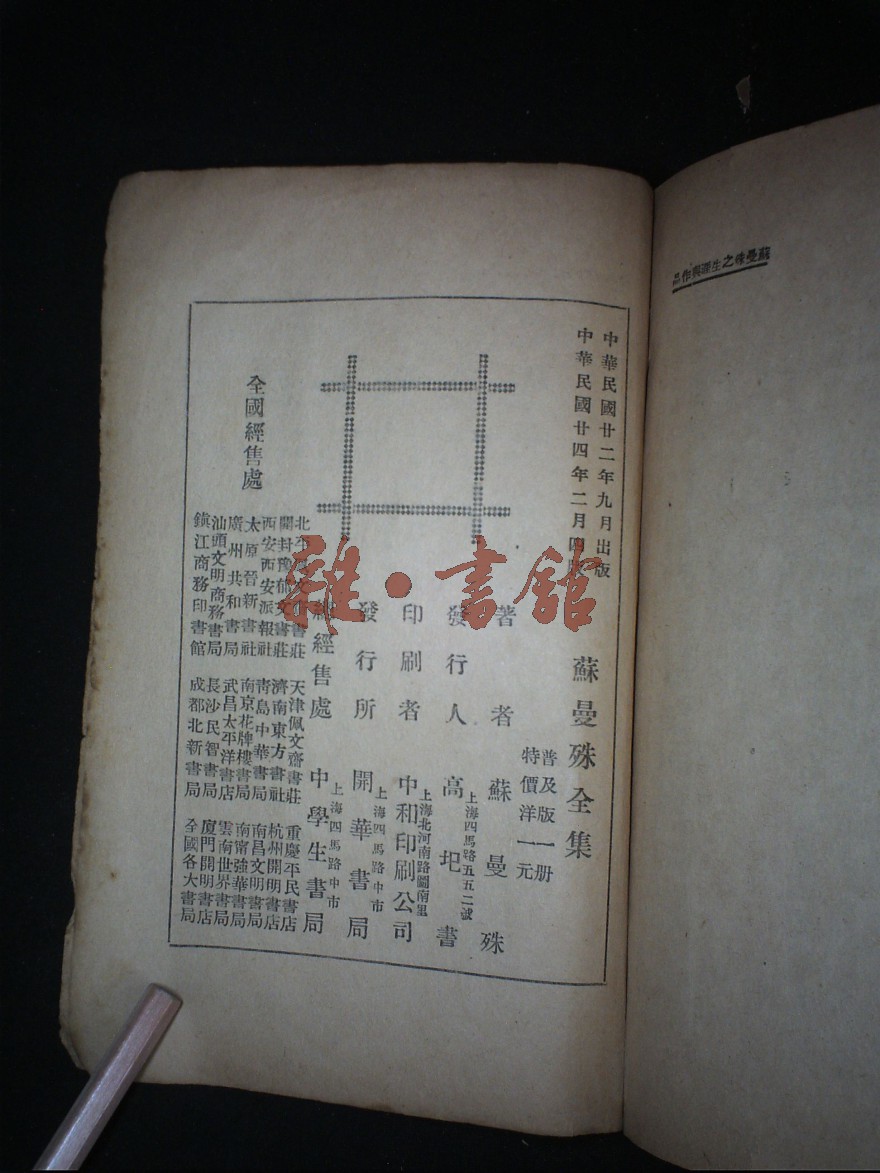 蘇曼殊之生涯與作品
中華民國廿二年九月出版
中華民國廿四年二月四版
蘇曼殊全集
普及版一册
特價洋一元
著者 蘇曼殊
上海四馬路五五二號
發行人 高圯書
上海北河南路圖南里
印刷者 中和印刷公司
上海四馬路中市
發行所 開華書局
上海四馬路中市
總經售處 中學生書局
全國經售處
北平 書莊 天津佩文齋書莊 重慶平民書店
開封豫郁文書莊 濟南東方書社 杭州開明書店
西安西安派報社 青島中華書局 南昌文明書局
太原晉新書社 南京花牌樓書局 南甯強華書局
廣州共和書局 武昌太平洋書店 雲南世界書局
汕頭文明商務書局 長沙民智書局 廈門開明書店
鎮江商務印書館 成都北新書局 全國各大書局
雜·書館